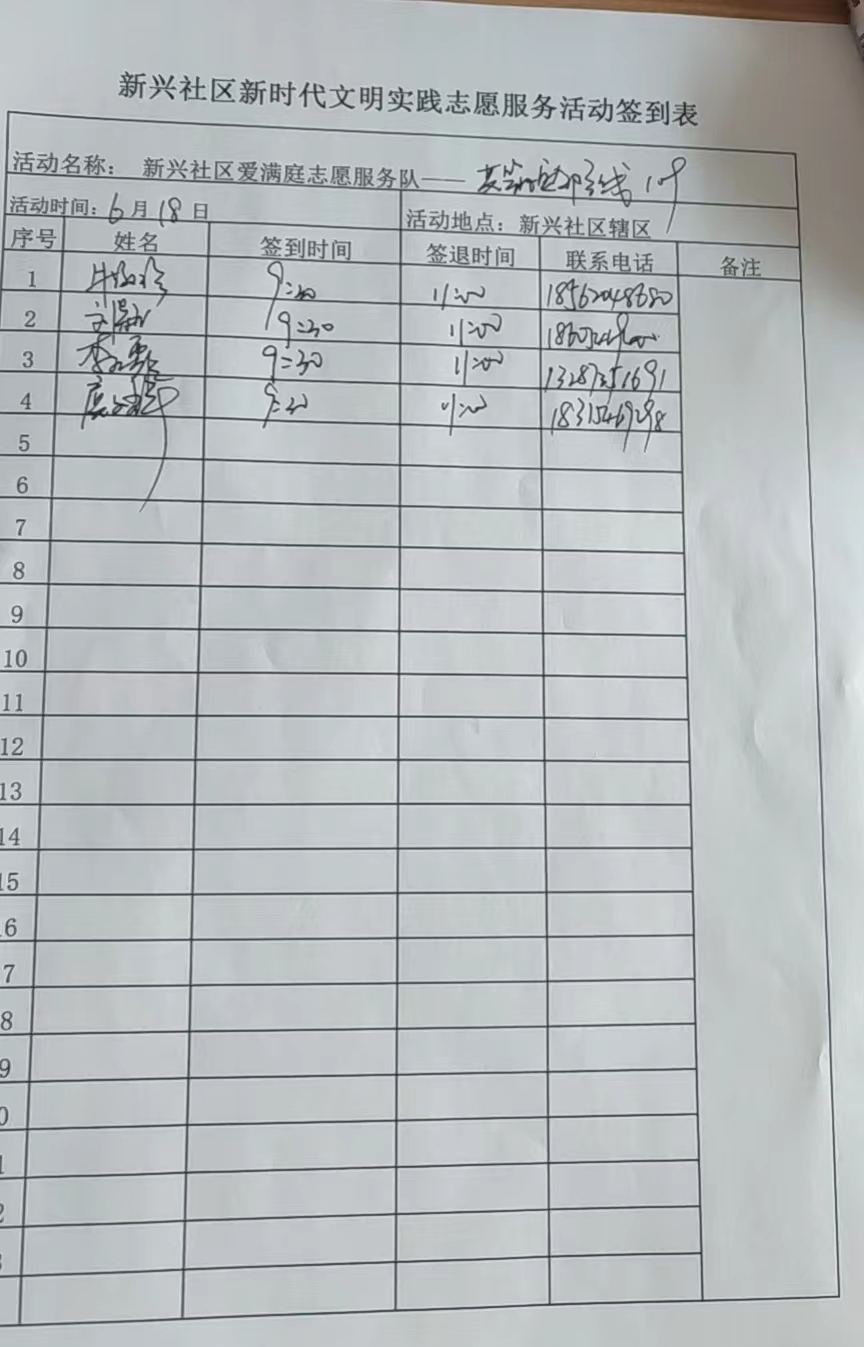 新兴社区新时代文明实践志愿服务活动签到表
活动名称： 新兴社区爱满庭志愿服务队——
活动时间：6月18日 活动地点：新兴社区辖区
序号 姓名 签到时间 签退时间 联系电话 备注
1 9:30 11:00 18562048680
2 9:30 11:00
3 9:30 11:00 13287351691
4 9:30 11:00 18315469298
5
6
7
8
9
10
11
12
13
14
15
6
7
8
9
0
1
2
3